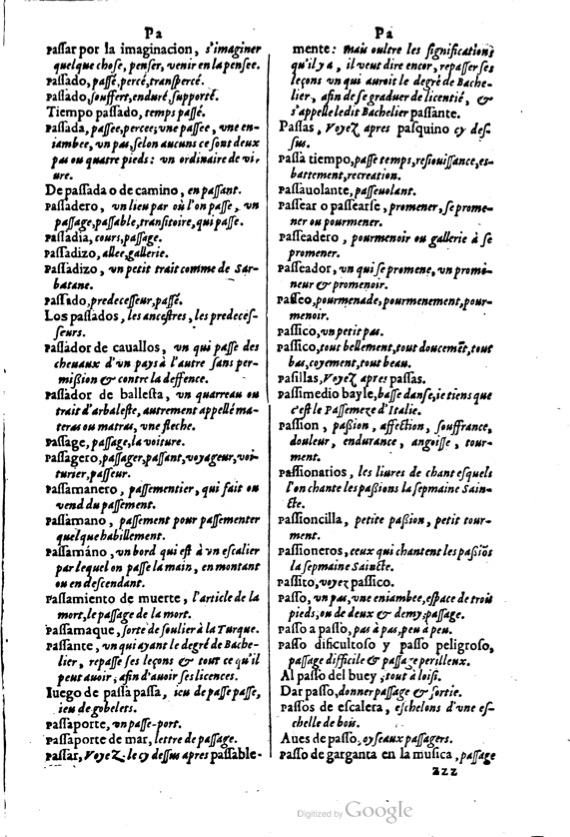 Pa
Paſſar por la imaginacion, s'imaginer
quelque choſe, penſer, venir en la penſee.
Paſſado, paſſé, percé, tranſpercé.
Paſſado, ſouffert, enduré, ſupporté.
Tiempo paſſado, temps paſſé.
Paſſada, paſſee, percee, vne paſſee, vne en-
iambee, vn pas, ſelon aucuns ce ſont deux
pas ou quatre pieds: vn ordinaire de vi-
ure.
De paſſada o de camino, en paſſant.
Paſſadero, vn lieu par où l'on paſſe, vn
paſſage, paſſable, tranſitoire, qui paſſe.
Paſſadia, cours, paſſage.
Paſſadizo, allee, gallerie.
Paſſadizo, vn petit trait comme de Sar-
batane.
Paſſado, predeceſſeur, paſſé.
Los paſſados, les anceſtres, les predeceſ-
ſeurs.
Paſſador de cauallos, vn qui paſſe des
cheuaux d'vn pays à l'autre ſans per-
miſſion & contre la deffence.
Paſſador de balleſta, vn quarreau ou
trait d'arbaleſte, autrement appellé ma-
teras ou matras, vne fleche.
Paſſage, paſſage, la voiture.
Paſſagero, paſſager, paſſant, voyageur, voi-
turier, paſſeur.
Paſſamanero, paſſementier, qui fait ou
vend du paſſement.
Paſſamano, paſſement pour paſſementer
quelque habillement.
Paſſamáno, vn bord qui eſt à vn eſcalier
par lequel on paſſe la main, en montant
ou en deſcendant.
Paſſamiento de muerte, l'article de la
mort, le paſſage de la mort.
Paſſamaque, ſorte de ſoulier à la Turque.
Paſſante, vn qui ayant le degré de Bache-
lier, repaſſe ſes leçons & tout ce qu'il
peut auoir, afin d'auoir ſes licences.
Iuego de paſſa paſſa, ieu de paſſe paſſe,
ieu de gobelets.
Paſſaporte, vn paſſe-port.
Paſſaporte de mar, lettre de paſſage.
Paſſar, Voyez le cy deſſus apres paſſable-
Pa
mente: mais oultre les ſignifications
qu'il y a, il veut dire encor, repaſſer ſes
leçons vn qui auroit le degré de Bache-
lier, afin de ſe graduer de licentié, &
s'appelle ledit Bachelier paſſante.
Paſſas, Voyez apres paſquino cy deſ-
ſus.
Paſſa tiempo, paſſe temps, reſiouiſſance, es-
battement, recreation.
Paſſauolante, paſſeuolant.
Paſſear o paſſearſe, promener, ſe prome-
ner ou pourmener.
Paſſeadero, pourmenoir ou gallerie à ſe
promener.
Paſſeador, vn qui ſe promene, vn prome-
neur & promenoir.
Paſſeo, pourmenade, pourmenement, pour-
menoir.
Paſſico, vn petit pas.
Paſſico, tout bellement, tout doucemēt, tout
bas, coyement, tout beau.
Paſillas, Voyez apres paſſas.
Paſſimedio bayle, baſſe danſe, ie tiens que
c'eſt le Paſſemeze d'Italie.
Paſſion, paſſion, affection, ſouffrance,
douleur, endurance, angoiſſe, tour-
ment.
Paſſionarios, les liures de chant eſquels
l'on chante les paſſions la ſepmaine Sain-
cte.
Paſſioncilla, petite paſſion, petit tour-
ment.
Paſſioneros, ceux qui chantent les paſſiōs
la ſepmaine Saincte.
Paſſito, voyez paſſico.
Paſſo, vn pas, vne eniambee, eſpace de trois
pieds, ou de deux & demy, paſſage.
Paſſo a paſſo, pas à pas, peu à peu.
Paſſo dificultoſo y paſſo peligroſo,
paſſage difficile & paſſage perilleux.
Al paſſo del buey, tout à loiſi.
Dar paſſo, donner paſſage & ſortie.
Paſſos de eſcalera, eſchelons d'vne eſ-
chelle de bois.
Aues de paſſo, oyſeaux paſſagers.
Paſſo de garganta en la muſica, paſſage
zzz
Digitized by Google